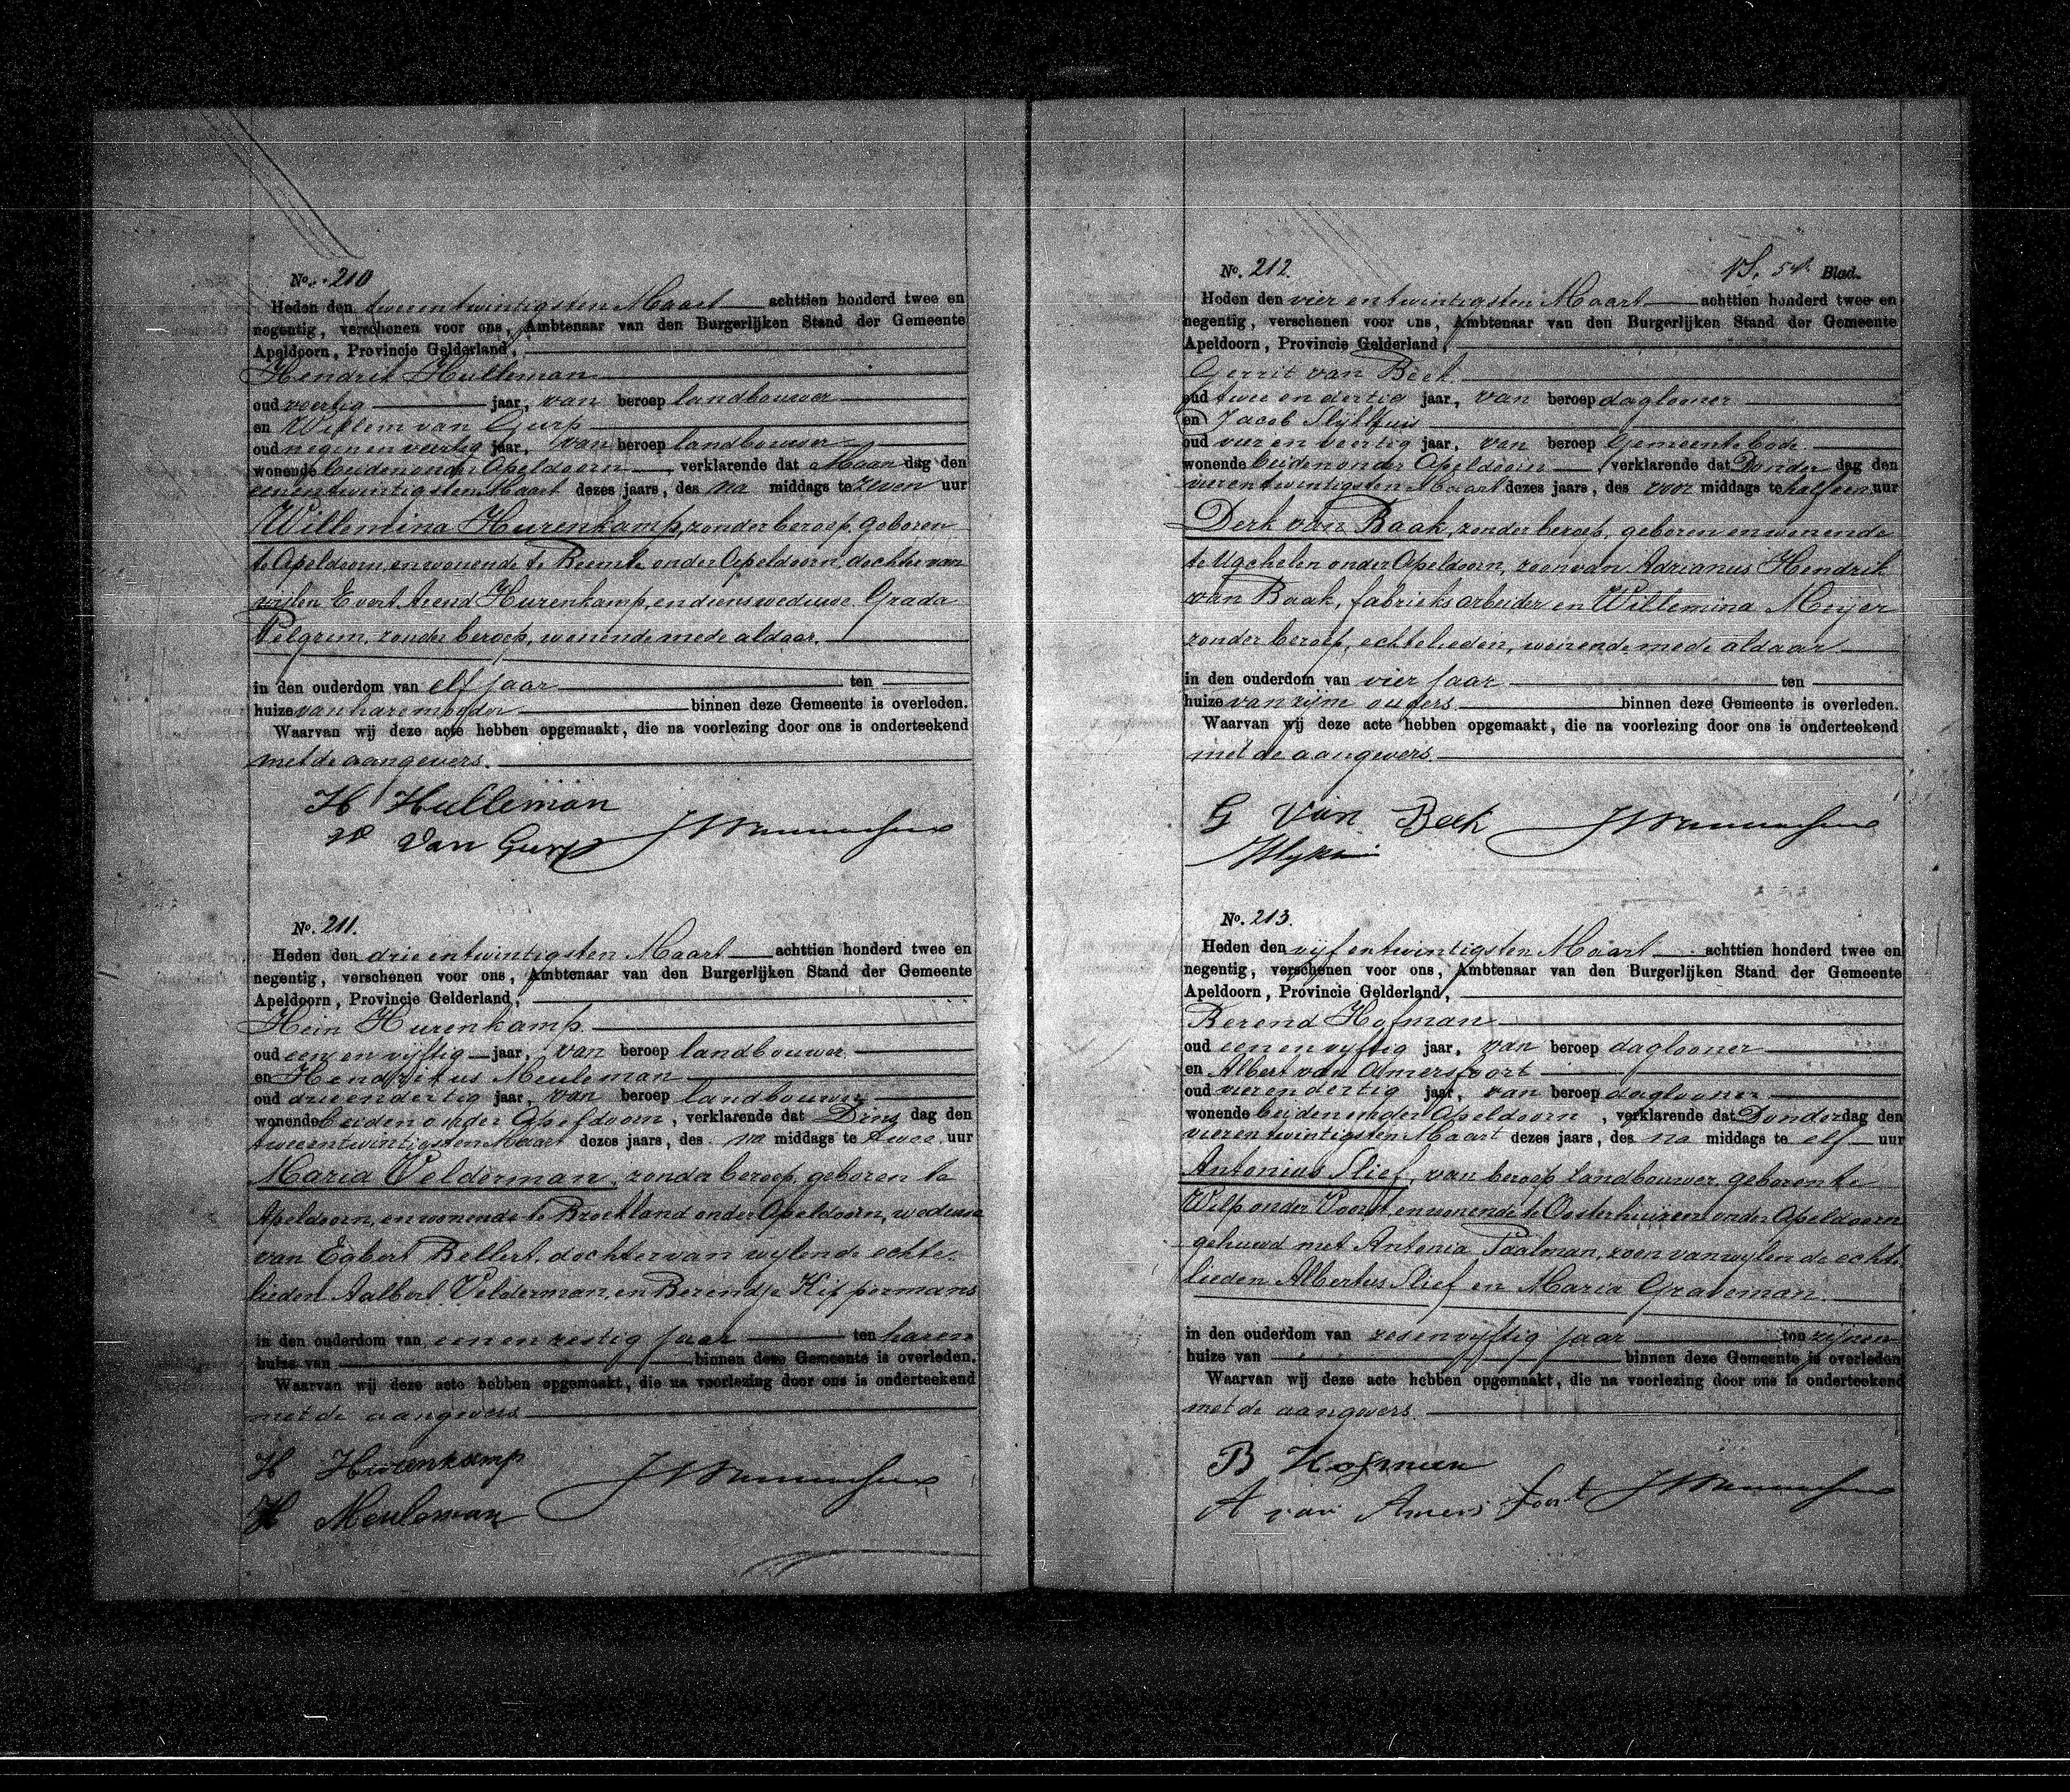 No. 210
Heden den tweeentwintigsten Maart achttien honderd twee en
negentig, verschenen voor ons, Ambtenaar van den Burgerlijken Stand der Gemeente
Apeldoorn, Provincie Gelderland,
Hendrik Hulleman
oud veertig jaar, van beroep landbouwer
en Willem van Gurp
oud negen en veertig jaar, van beroep landbouwer
wonende beiden onder Apeldoorn verklarende dat Maandag den
eenentwintigsten Maart dezes jaars, des na middags te zeven uur
Willemina Hurenkamp, zonder beroep, geboren
te Apeldoorn, en wonende te Beemte onder Apeldoorn, dochter van
wijlen Evert Arend Hurenkamp, en diens weduwe Grada
Pelgrum, zonder beroep, wonende mede aldaar.
in den ouderdom van elf jaar ten
huize van hare moeder binnen deze Gemeente is overleden.
Waarvan wij deze acte hebben opgemaakt, die na voorlezing door ons is onderteekend
met de aangevers.
H Hulleman
W van Gurp
No. 211.
Heden den drieentwintigsten Maart achttien honderd twee en
negentig, verschenen voor ons, Ambtenaar van den Burgerlijken Stand der Gemeente
Apeldoorn, Provincie Gelderland,
Hein Hurenkamp
oud een en vijftig jaar, van beroep landbouwer
en Hendrikus Meuleman
oud drieendertig jaar, van beroep landbouwer
wonende beiden onder Apeldoorn, verklarende dat Dinsdag den
tweeentwintigsten Maart dezes jaars, des na middags te twee uur
Maria Velderman, zonder beroep, geboren te
Apeldoorn, en wonende te Broekland onder Apeldoorn, weduwe
van Egbert Bellert, dochter van wijlen de echte-
lieden Aalbert Velderman, en Berendje Kippermans
in den ouderdom van een en zestig jaar ten haren
huize van binnen deze Gemeente is overleden.
Waarvan wij deze acte hebben opgemaakt, die na voorlezing door ons is onderteekend
met de aangevers
H Hurenkamp
H Meuleman
No. 212. 54. Blad.
Heden den vier en twintigsten Maart achttien honderd twee en
negentig, verschenen voor ons, Ambtenaar van den Burgerlijken Stand der Gemeente
Apeldoorn, Provincie Gelderland,
Gerrit van Beek
oud twee en dertig jaar, van beroep daglooner
en Jacob Slijkhuis
oud vier en veertig jaar, van beroep Gemeentebode
wonende beiden onder Apeldoorn verklarende dat Donderdag den
vierentwintigsten Maart dezes jaars, des voor middags te half een uur
Derk van Baak, zonder beroep, geboren en wonende
te Ugchelen onder Apeldoorn, zoon van Adrianus Hendrik
van Baak, fabrieksarbeider en Willemina Meijer
zonder beroep, echtelieden, wonende mede aldaar
in den ouderdom van vier jaar ten
huize van zijne ouders binnen deze Gemeente is overleden.
Waarvan wij deze acte hebben opgemaakt, die na voorlezing door ons is onderteekend
met de aangevers.
G van Beek
No. 213.
Heden den vijfentwintigsten Maart achttien honderd twee en
negentig, verschenen voor ons, Ambtenaar van den Burgerlijken Stand der Gemeente
Apeldoorn, Provincie Gelderland,
Berend Hofman
oud een en vijftig jaar, van beroep daglooner
en Albert van Amersfoort
oud vierendertig jaar, van beroep daglooner
wonende beiden onder Apeldoorn, verklarende dat Donderdag den
vierentwintigsten Maart dezes jaars, des na middags te elf uur
Antonius Slief, van beroep landbouwer, geboren te
Wilp onder Voorst en wonende te Oosterhuizen onder Apeldoorn
gehuwd met Antonia Paalman, zoon van wijlen de echte
lieden Albertus Slief en Maria Graveman.
in den ouderdom van zesenvijftig jaar ten zijnen
huize van binnen deze Gemeente is overleden
Waarvan wij deze acte hebben opgemaakt, die na voorlezing door ons is onderteekend
met de aangevers.
B Hofman
A van Amersfoort